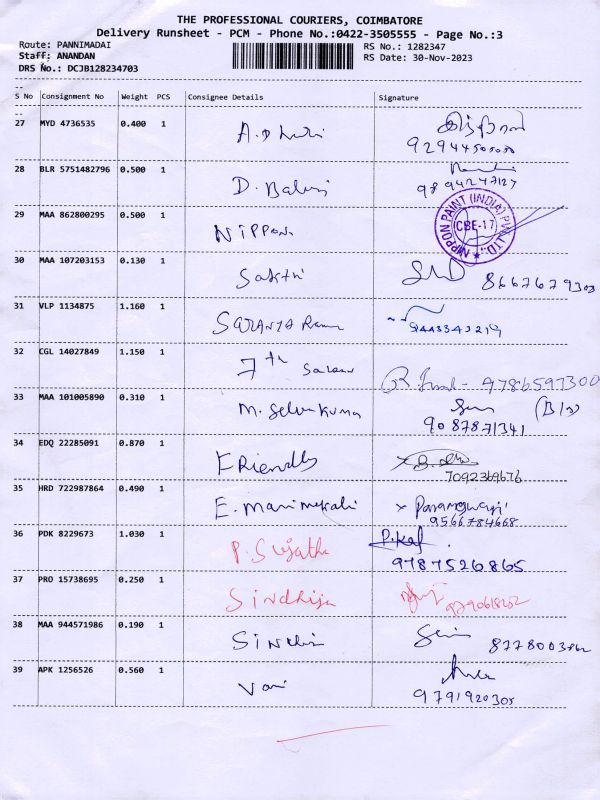 THE PROFESSIONAL COURIERS, COIMBATORE
Delivery Runsheet - PCM - Phone No.:0422-3505555 - Page No.:3
Route: PANNIMADAI
RS No.: 1282347
Staff: ANANDAN
RS Date: 30-Nov-2023
DRS No.: DCJB128234703
S No Consignment No Weight PCS Consignee Details Signature
27 MYD 4736535 0.400 1
28 BLR 5751482796 0.500 1 D. Balaji
29 MAA 862800295 0.500 1 NIPPON
NIPPON PAINT (INDIA) PVT. LTD. CBE-17
30 MAA 107203153 0.130 1 Sakthi
31 VLP 1134875 1.160 1 SARANYA
32 CGL 14027849 1.150 1 7th
9786597300
33 MAA 101005890 0.310 1 M. Selvakumar
9087871341
34 EDQ 22285091 0.870 1 FRiendly
7092369676
35 HRD 722987864 0.490 1 E. Manimekali x Parameswari
9566784668
36 PDK 8229673 1.030 1 P. Sujatha
9787526865
37 PRO 15738695 0.250 1 Sindhija
38 MAA 944571986 0.190 1
39 APK 1256526 0.560 1 Vani